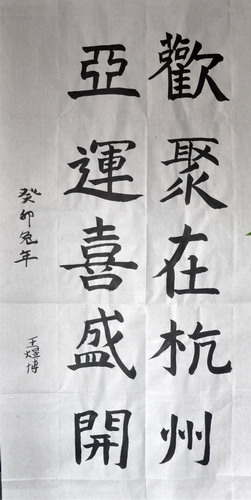 歡聚在杭州
亞運喜盛開
癸卯兔年
王煜博